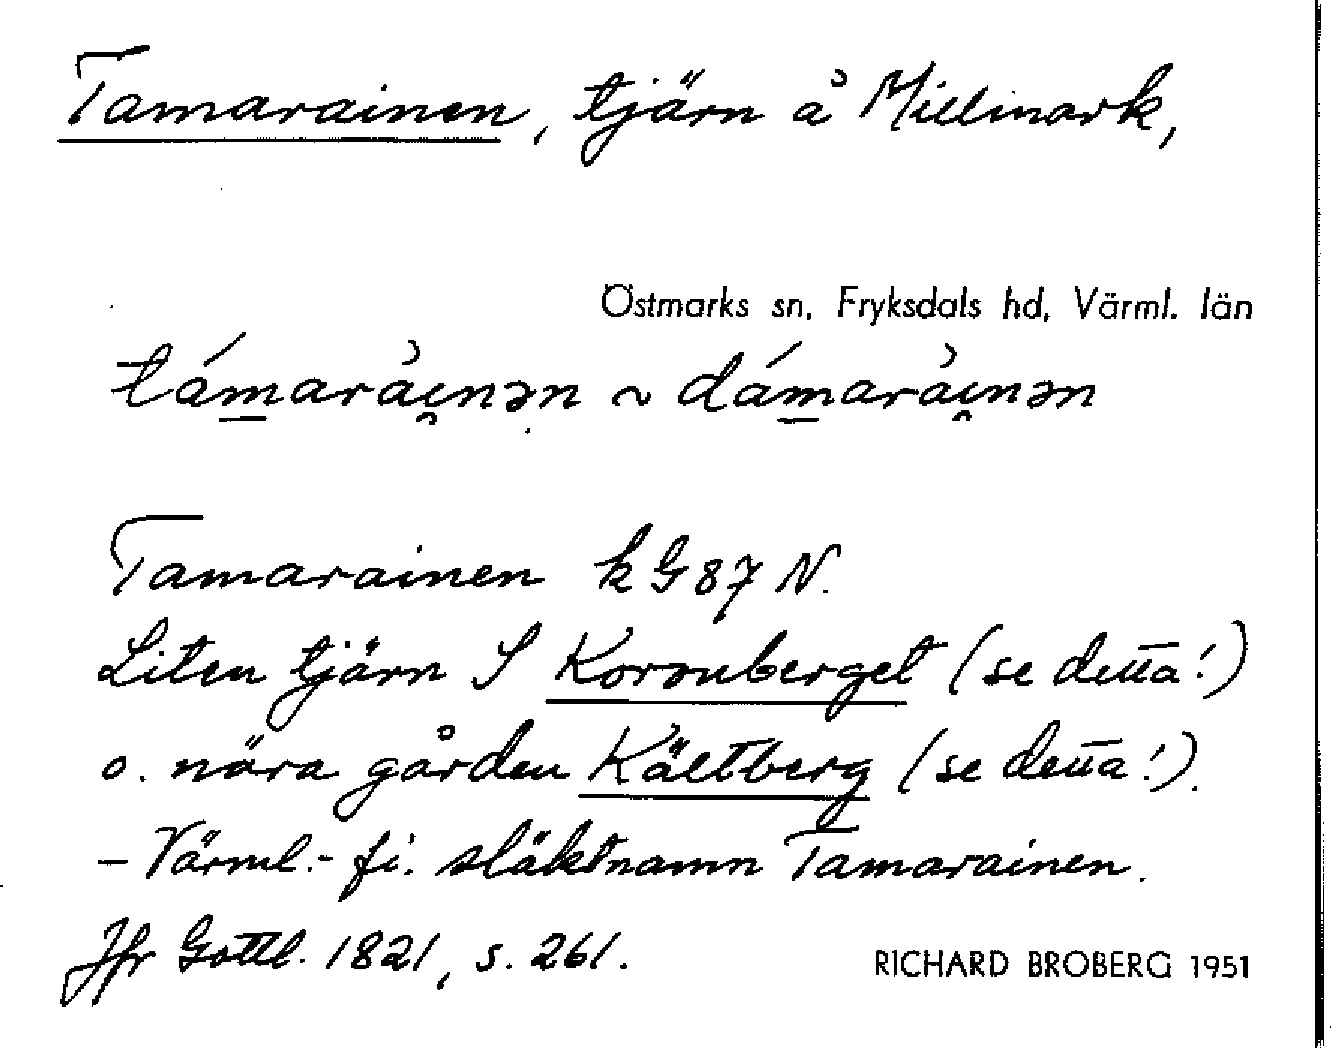 Tamarainen, tjärn å Millmark,
Östmarks sn, Fryksdals hd, Värml. län
támaràinən ~ dámaràinən
Tamarainen k G 87 N.
Liten tjärn S Koronberget (se detta!)
o. nära gården Kältberg (se detta!).
– Värml.- fi. släktnamn Tamarainen.
Jfr Gottl. 1821, s. 261.
RICHARD BROBERG 1951